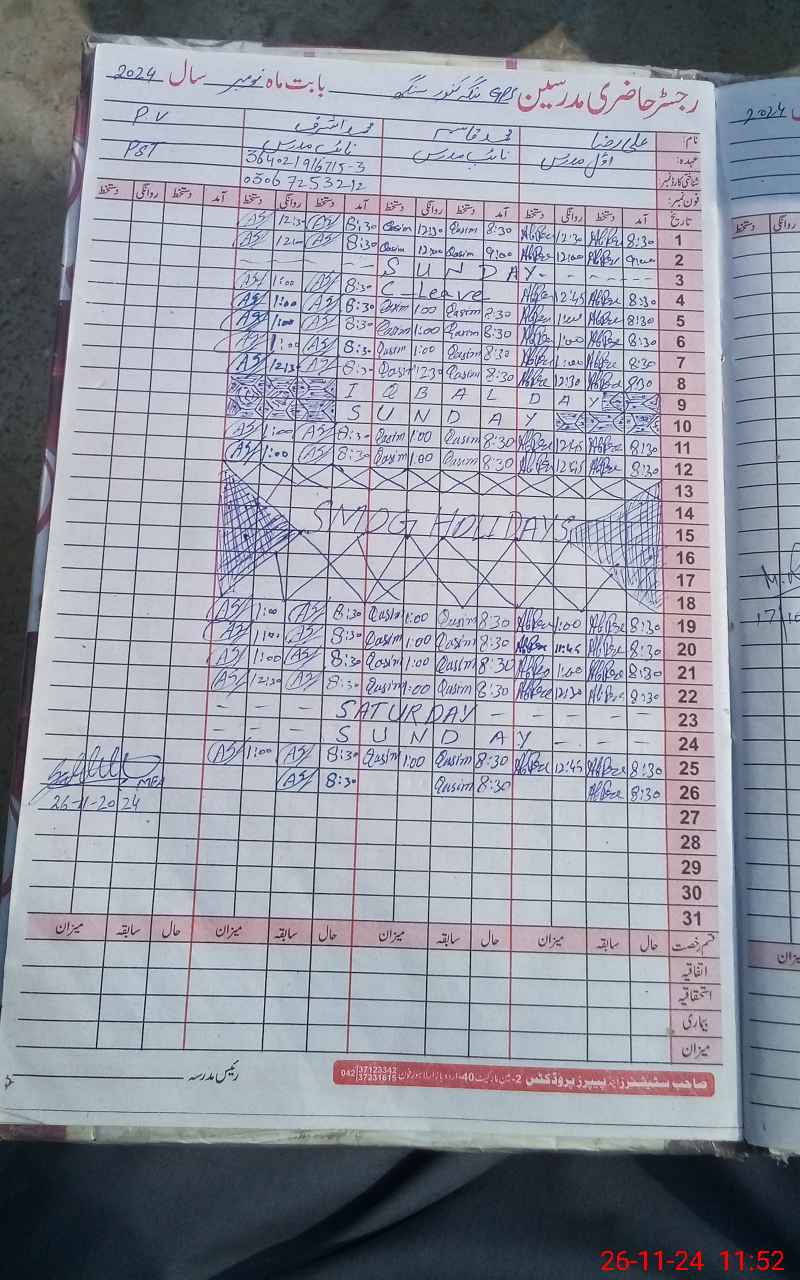 رجسٹر حاضری مدرسین GPS بابت ماہ نومبر سال 2024
نام: علی رضا محمد قاسم محمد اشرف P.V
عہدہ: اول مدرس نائب مدرس نائب مدرس PST
شناختی کارڈ نمبر: 364021916715-3
فون نمبر: 03067253212
تاریخ آمد دستخط روانگی دستخط آمد دستخط روانگی دستخط آمد دستخط روانگی دستخط آمد دستخط روانگی دستخط
1 8:30 12:30 8:30 Qasim 12:30 Qasim 8:30 AS 12:30 AS
2 9:00 12:00 9:00 Qasim 12:00 Qasim 8:30 AS 12:00 AS
3 SUNDAY
4 8:30 12:45 C-Leave 8:30 AS 1:00 AS
5 8:30 1:00 8:30 Qasim 1:00 Qasim 8:30 AS 1:00 AS
6 8:30 1:00 8:30 Qasim 1:00 Qasim 8:30 AS 1:00 AS
7 8:30 1:00 8:30 Qasim 1:00 Qasim 8:30 AS 1:00 AS
8 8:30 12:30 8:30 Qasim 12:30 Qasim 8:30 AS 12:30 AS
9 IQBAL DAY
10 SUNDAY
11 8:30 12:45 8:30 Qasim 1:00 Qasim 8:30 AS 1:00 AS
12 8:30 12:45 8:30 Qasim 1:00 Qasim 8:30 AS 1:00 AS
13
14
15 SMOG HOLIDAYS
16
17
18
19 8:30 1:00 8:30 Qasim 1:00 Qasim 8:30 AS 1:00 AS
20 8:30 11:45 8:30 Qasim 1:00 Qasim 8:30 AS 1:00 AS
21 8:30 1:00 8:30 Qasim 1:00 Qasim 8:30 AS 1:00 AS
22 8:30 12:30 8:30 Qasim 1:00 Qasim 8:30 AS 12:30 AS
23 SATURDAY
24 SUNDAY
25 8:30 12:45 8:30 Qasim 1:00 Qasim 8:30 AS 1:00 AS
26 8:30 8:30 Qasim 8:30 AS
MEA
26-11-2024
27
28
29
30
31
قسم رخصت حال سابقہ میزان حال سابقہ میزان حال سابقہ میزان حال سابقہ میزان
اتفاقیہ
استحقاقیہ
بیماری
میزان
رئیس مدرسہ
صاحب سٹیشنرز اینڈ پیپرز پروڈکٹس 2-مین مارکیٹ 40-اردو بازار لاہور فون 042 37123342 37231615
2024
دستخط روانگی
17 10
26-11-24 11:52